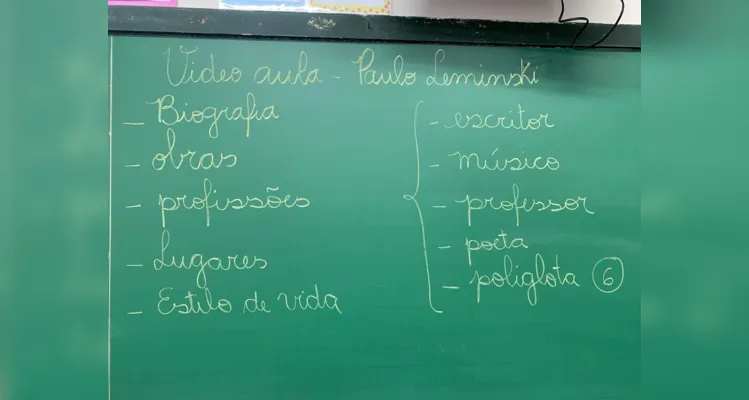 Video aula - Paulo Leminski
- Biografia
- obras
- profissões
- Lugares
- Estilo de vida
- escritor
- músico
- professor
- poeta
- poliglota 6